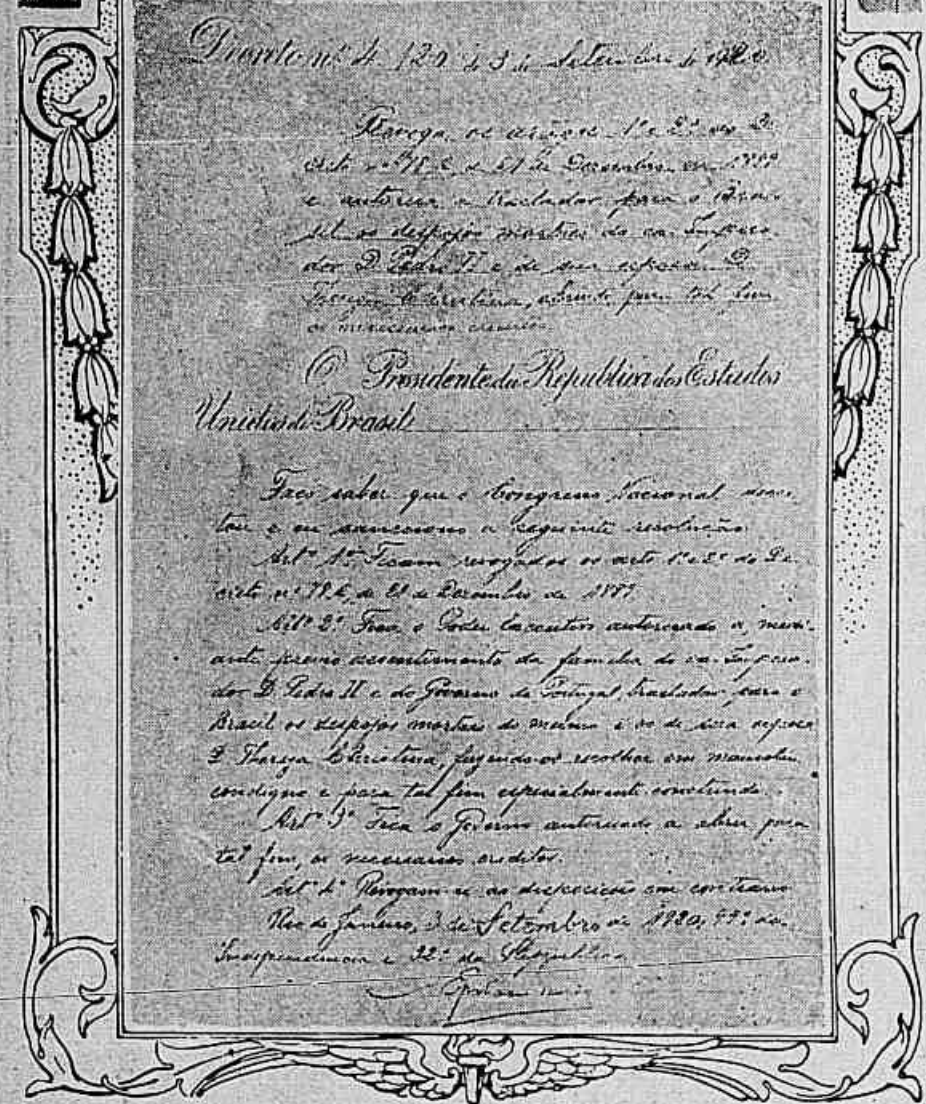 Decreto nº 4.120 de 3 de Setembro de 1920
Revoga os artigos 1º e 2º do De-
creto nº 78 A, de 21 de Dezembro de 1889
e autoriza a trasladar para o Bra-
sil os despojos mortais do ex-Impera-
dor D. Pedro II e de sua esposa D.
Thereza Christina, abrindo para tal fim
os necessarios creditos.
O Presidente da Republica dos Estados
Unidos do Brasil:
Faço saber que o Congresso Nacional decre-
tou e eu sancciono a seguinte resolução:
Artº 1º Ficam revogados os arts 1º e 2º do De-
creto nº 78 A, de 21 de Dezembro de 1889
Artº 2º Fica o Poder Executivo autorizado a, medi-
ante previo assentimento da familia do ex-Impera-
dor D. Pedro II e do Governo de Portugal, trasladar para o
Brasil os despojos mortais do mesmo e os de sua esposa
D. Thereza Christina, fazendo-os recolher em mausoleu
condigno e para tal fim especialmente construido.
Artº 3º Fica o Governo autorizado a abrir para
tal fim, os necessarios creditos.
Artº 4º Revogam-se as disposições em contrario
Rio de Janeiro, 3 de Setembro de 1920, 99º da
Independencia e 32º da Republica